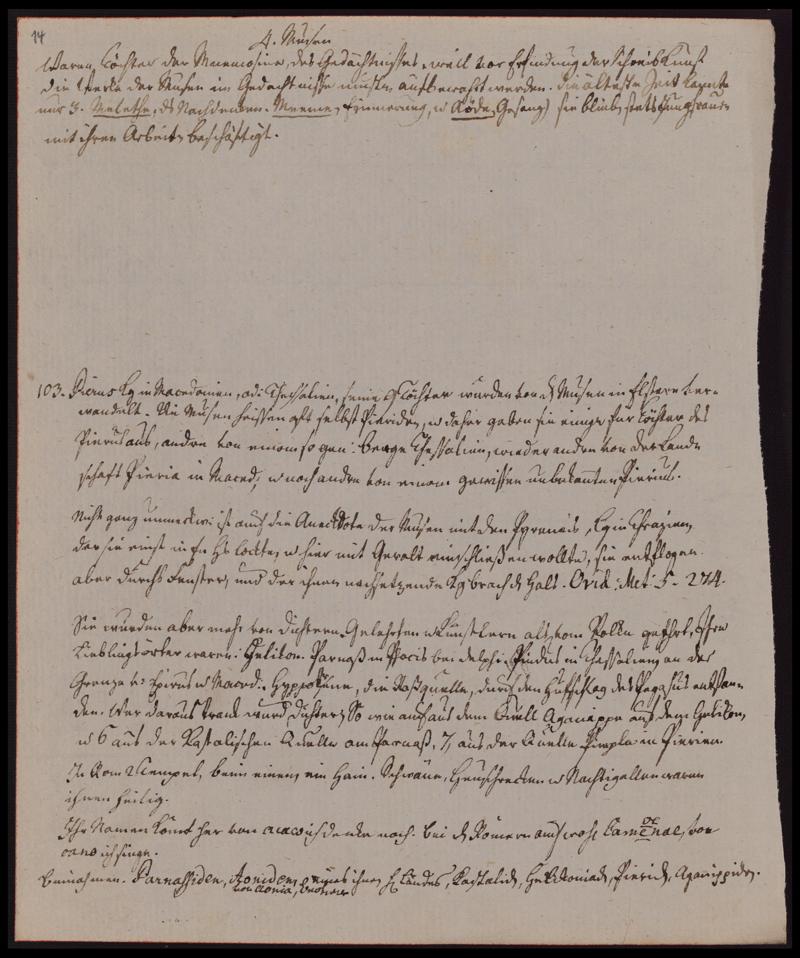 14
4. Musen
Waren Töchter der Mnemosine, des Gedächtnisses, weil vor Erfindung der Schreibkunst
die Werke der Musen im Gedächtnisse mußten aufbewahrt werden. Die älteste Zeit kannte
nur 3. Melethe, ds Nachdenken. Mneme, Erinnerung, u Aöde, Gesang) sie blieb stets Jungfrauen
mit ihren Arbeiten beschäftigt.
103. Pierus Kg in Macedonien, od: Thessalien, seine 9 Töchter wurden von d Musen in Elstern ver-
wandelt. Die Musen heissen oft selbst Pieriden, u daher gaben sie einige für Töchter des
Pierus aus, andre von einem so gen: Berge Thessaliens, wieder andre von der Land-
schaft Pieria in Maced; u noch andre von einem gewissen unbekannten Pierius.
Nicht ganz unmerkw: ist auch die Aneckdote der Musen mit dem Pyreneus, Kg in Thrazien,
der sie einst in sn Hs lockte, u hier mit Gewalt einschließen wollte, sie entflogen
aber durchs Fenster, und der ihnen nachsetzende Kg brach d Hals. Ovid. Met: 5. 274.
Sie wurden aber mehr von Dichtern Gelehrten u Künstlern als vom Volke geehrt. Ihre
Lieblingsörter waren: Helikon. Parnaß in Phocis bei Delphi. Pindus in Thessalien, an der
Grenze v: Epirus u Maced:. Hyppokrene, die Roßquelle, durch den Hufschlag des Pegasus entstan-
den. Wer daraus trank wurd Dichter, So wie auch aus dem Quell Aganippe auf dem Helikon,
u 6 aus der Kastalischen Quelle am Parnaß, 7, aus der Quelle Pimpla in Pierien.
In Rom 2 Tempel, beim einen, ein Hain. Schwäne, Heuschrecken u Nachtigallen waren
ihnen heilig.
Ihr Namen kömt her von ich denke nach. bei d Römern auch wohl Camenae, von
cano ich singe.
Beinahmen. Parnassiden, Aoniden, eines ihnen Landes, Kastalid, Helikoniad, Pierid, Aganippiden.
von Aonia,